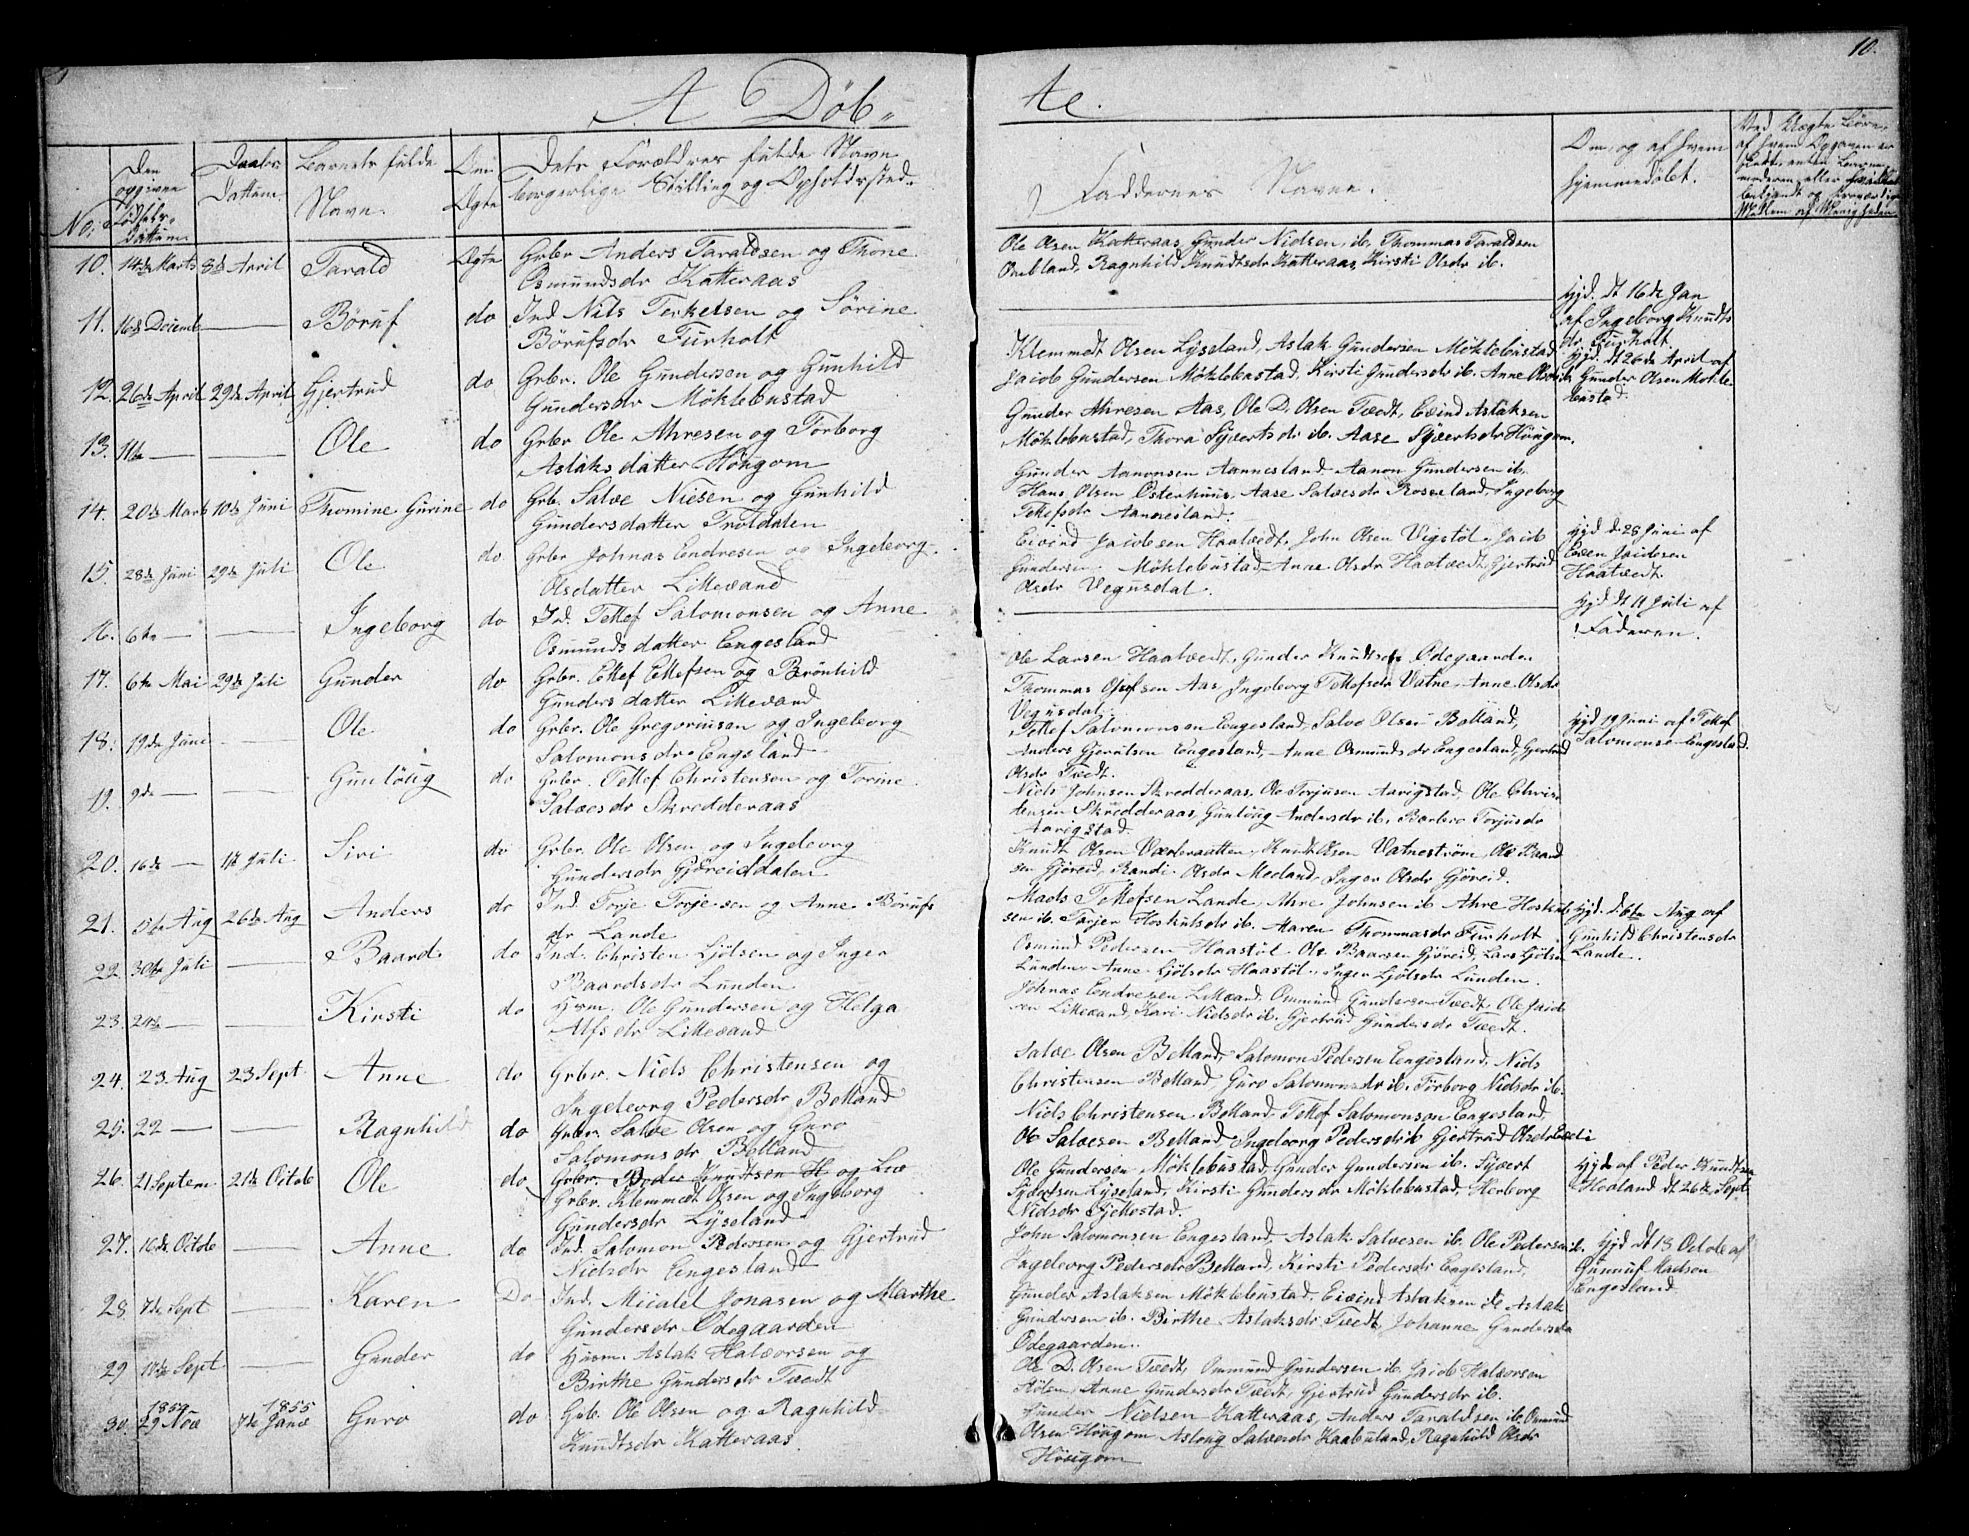 10.
A Døb„
te.
No:
Den
opgivne
Fødsels-
Dattum
Daabs
Dattum
Barnets fulde
Navn.
Om
Ægte
Dets Forældres fulde Navn
borgerlige Stilling og Opholdssted.
Faddernes Navne.
Om, og af hvem
hjemmedøbt.
10. 14de Marts 8de April Tarald Ægte Grbr Anders Taraldsen og Thone
Osmundsdr Katteraas
Ole Olsen Katteraas, Gunder Nielsen ib. Thommas Taraldsen
Ombland, Ragnhild Knudtsdr Katteraas, Kirsti Olsdr ib.
11. 16de Decemb — Börüf do Ind Nils Terkelsen og Sörine
Börufsdr Furholt
Hjd. dt 16de Jan
af Ingeborg Knudts
dr Furholt.
12. 26de April 29de April Gjertrud do Grbr. Ole Gundersen og Gunhild
Gundersdr Möklebustad
Klemmedt Olsen Lyseland, Aslak Gundersen Möklebustad
Jacob Gundersen Möklebustad, Kirsti Gundersdr ib. Anne Olsdr ib
Hjd. dt 26de April af
Gunder Olsen Mökle
bustad.
13. 11te — — Ole do Grbr Ole Ahresen og Torborg
Aslaksdatter Höugom
Gunder Ahresen Aas, Ole D. Olsen Tvedt, Eivind Aslaksen
Möklebustad, Thora Syvertsdr ib. Aase Syvertsdr Höugom.
14. 20de Marts 10de Juni Thomine Gurine do Grbr Salve Nilsen og Gunhild
Gundersdatter Troldalen
Gunder Aanonsen Aannesland, Aanon Gundersen ib.
Hans Olsen Osterhuus, Aase Salvesdr Rosseland, Ingeborg
Tellefsdr Aannesland.
15. 28de Juni 29de Juli Ole do Grbr Johnas Endresen og Ingeborg
Olsdatter Lillevand
Eivind Jacobsen Haatvedt, John Olsen Vigstöl, Jacob
Gundersen Möklebustad, Anne Olsdr Haatvedt, Gjertrud
Olsdr Vegusdal.
Hjd d. 28 Juni af
Even Jacobsen
Haatvedt.
16. 6te — — Ingeborg do Ind. Tellef Salomonsen og Anne
Osmundsdatter Engesland
Hjd dt 11 Juli af
Faderen.
17. 6te Mai 29de Juli Gunder do Grbr. Ellef Ellefsen og Brönhild
Gundersdatter Lillevand
Ole Larsen Haatvedt, Gunder Knudtsen Ødegaarden
Thommas Olsen Aas, Ingeborg Tellefsdr Vatne, Anne Olsdr
Vegusdal.
18. 19de Juni — Ole do Grbr. Ole Gregoriusen og Ingeborg
Salomonsdr Engesland
Tellef Salomonsen Engesland, Salve Olsen Belland,
Anders Engesland, Anne Osmundsdr Engesland, Gjertrud
Olsdr Tvedt.
Hjd 19 Juni af Tellef
Salomonse Engesland.
19. 9de — — Gunlöug do Grbr. Tellef Christensen og Torine
Salvesdr Skredderaas
Niels Johnsen Skredderaas, Ole Torjusen Aarigstad, Ole Chris
tensen Skredderaas, Gunlöug Andersdr ib. Barbro Torjusdr
Aarigstad.
20. 16de — 1ste Juli Siri do Grbr. Ole Olsen og Ingeborg
Gundersdr Gjöreiddalen
Knudt Olsen Knudt Olsen Vatneström, Ole Baard
sen Gjöreid, Randi Olsdr Moland, Inger Olsdr Gjöreid.
21. 15de Aug 26de Aug Anders do Ind. Torje Torjesen og Anne Börufs
dr Lande
Mads Tellefsen Lande, Ahre Johnsen ib Ahre Hoskul
sen ib. Torjer Hoskulsdr ib. Maren Thommasdr Furholt
Hjd. d. 6te Aug af
Gunhild Christensdr
Lande.
22. 30te Juli — Baard do Ind. Christen Ljölsen og Inger
Baardsdr Lunden
Osmund Pedersen Haastöl, Ole Baarsen Gjöreid, Lars Ljölsen
Lunden, Anne Ljölsdr Haastöl, Inger Ljölsdr Lunden.
23. 24de — — Kirsti do Husm. Ole Gundersen og Helga
Alfsdr Lillevand
Johnas Endresen Lillevand, Ommund Gundersen Tvedt, Ole Jacob
sen Lillevand, Kari Nielsdr ib. Gjertrud Gundersdr Tvedt.
24. 23. Aug 23 Sept Anne do Grbr. Niels Christensen og
Ingeborg Pedersdr Belland
Salve Olsen Belland, Salomon Pedersen Engesland, Niels
Christensen Belland, Guro Salomonsdr ib. Torborg Nielsdr ib.
25. 22 — — Ragnhild do Grbr. Salve Olsen og Guro
Salomonsdr Belland
Niels Christensen Belland, Tellef Salomonsen Engesland
Ole Salvesen Belland, Ingeborg Pedersdr ib Gjertrud Olsdr
26. 21 Septem 21de Octob Ole do Grbr. Peder Knudtsen H og Liv
Grbr. Klemmedt Olsen og Ingeborg
Gundersdr Lyseland
Ole Gundersen Möklebustad, Gunder Gundersen ib. Syvert
Syvertsen Lyseland, Kirsti Gundersdr Möklebustad, Herborg
Nielsdr Fjellestad.
Hjd af Peder Knudtsen
Hodland dt 26de Sept
27. 16de Octob — Anne do Ind. Salomon Pedersen og Gjertrud
Nielsdr Engesland
John Salomonsen Engesland, Aslak Salvesen ib. Ole Pedersen ib.
Ingeborg Pedersdr Belland, Kirsti Pedersdr Engesland,
Hjd dt 18 Octob af
Gunnuf Madsen
Engesland
28. 7de Sept — Karen Do Ind. Micalel Jonasen og Marthe
Gundersdr Ødegaarden
Gunder Aslaksen Möklebustad, Eivind Aslaksen ib Aslak
Gundersen ib. Birthe Aslaksdr Tvedt, Johanne Gundersdr
Ødegaarden.
29 17de Sept — Gunder do Husm. Aslak Halvorsen og
Birthe Gundersdr Tvedt
Ole D. Olsen Tvedt, Ommund Gundersen ib. Jacob Halvorsen
Anne Gundersdr Tvedt, Gjertrud Gundersdr ib.
30. 1854 29 Nov 1855 7de Janv Guro do Grb. Ole Olsen og Ragnhild
Knudtsdr Katteraas.
Gunder Nielsen Katteraas, Anders Taraldsen ib. Osmund
Olsen Höugom, Aslaug Salvesdr Kaabuland, Ragnhild Olsdr
Höugom